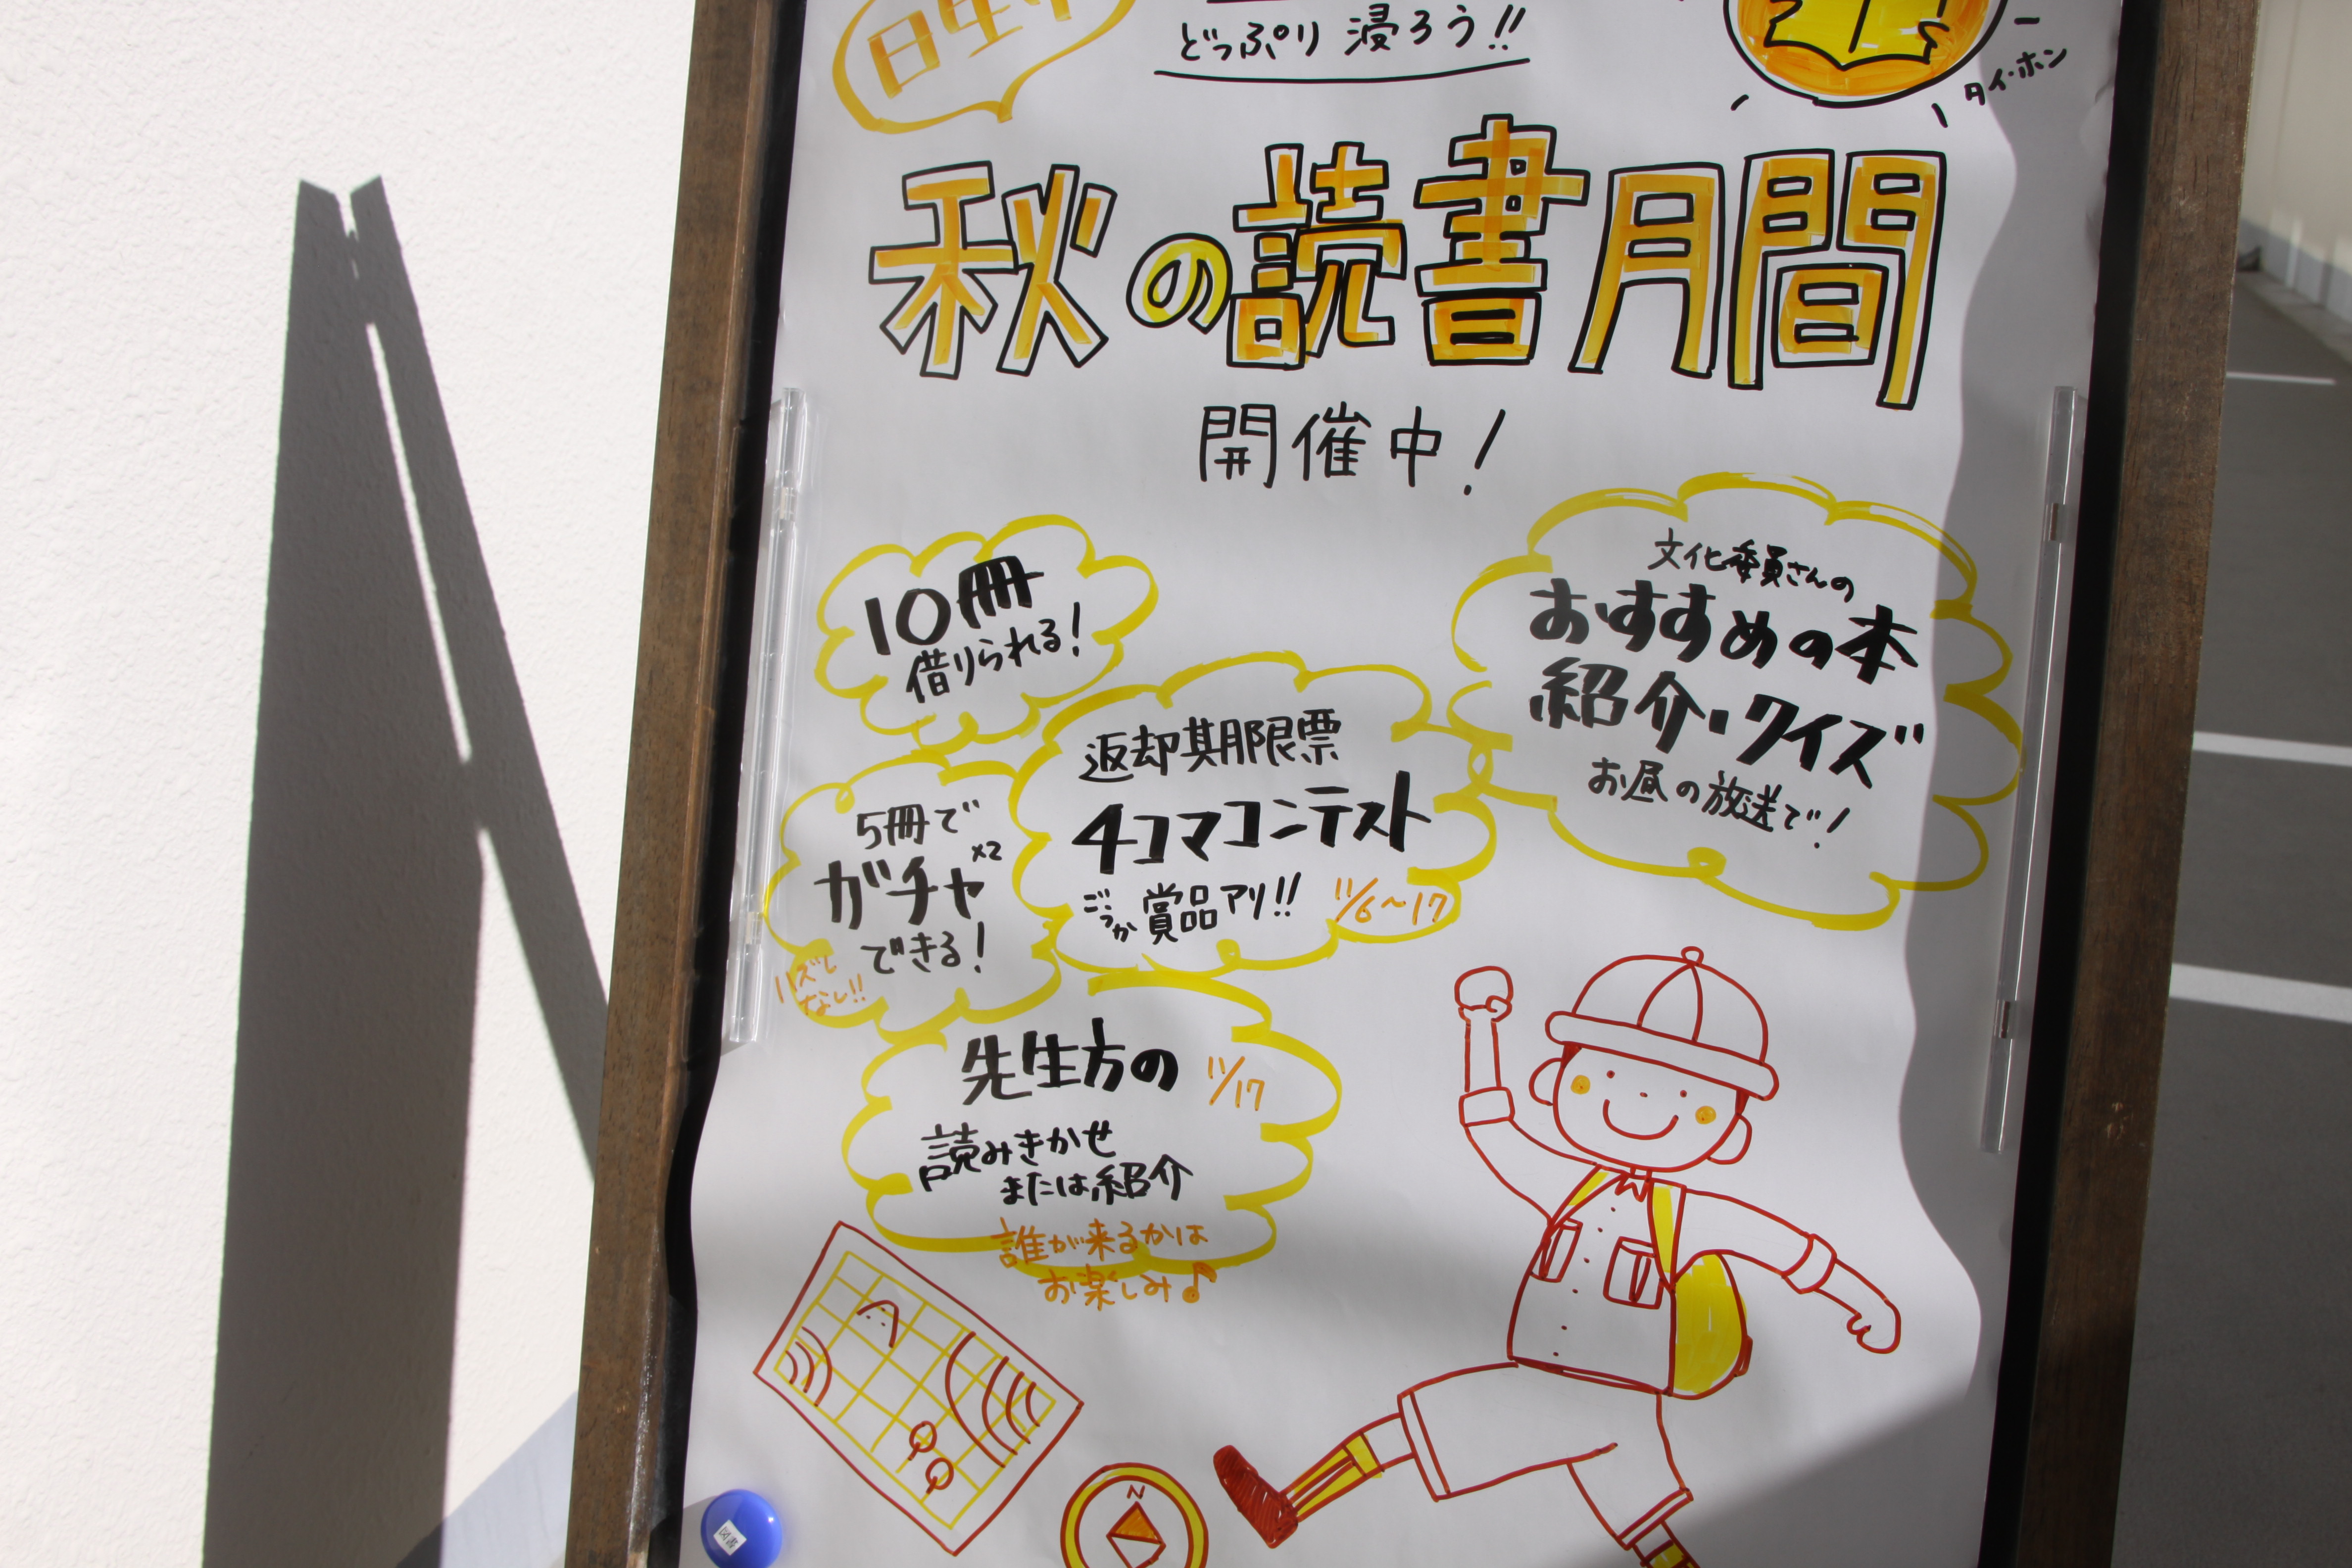 どっぷり 浸ろう!!
タイ・ホン
秋の読書月間
開催中!
10冊
借りられる!
文化委員さんの
おすすめの本
紹介・クイズ
お昼の放送で!
返却期限票
4コマコンテスト
ごうか賞品アリ!! 11/6~17
5冊で
ガチャ×2
できる!
ハズレ
なし!!
先生方の 11/17
読みきかせ
または紹介
誰が来るかは
お楽しみ♪
N
図書